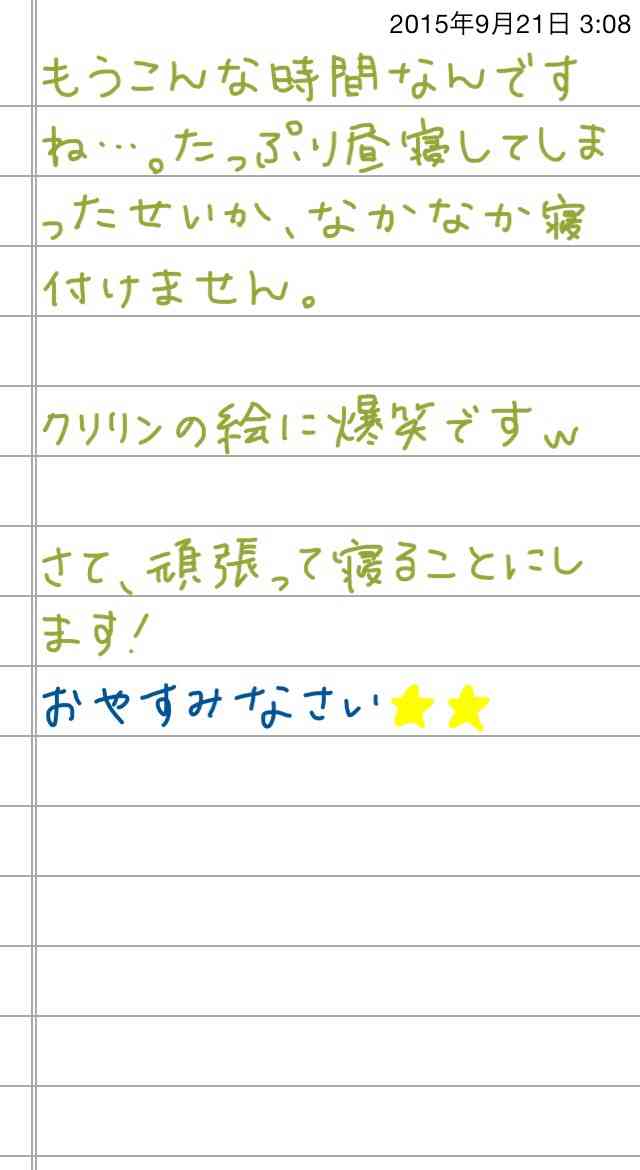 2015年9月21日 3:08
もうこんな時間なんです
ね…。たっぷり昼寝してしま
ったせいか、なかなか寝
付けません。
クリリンの絵に爆笑ですw
さて、頑張って寝ることにし
ます!
おやすみなさい★★